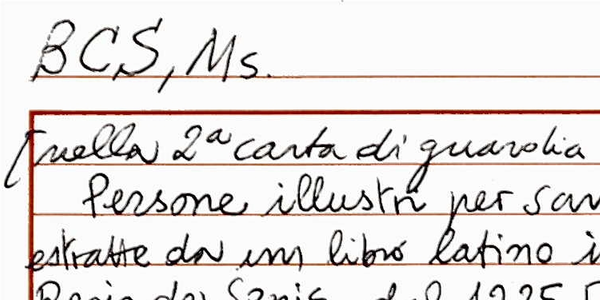 BCS, Ms.
[nella 2ª carta di guardia
Persone illustri per san
estratte da un libro latino i
da Siris del 1225